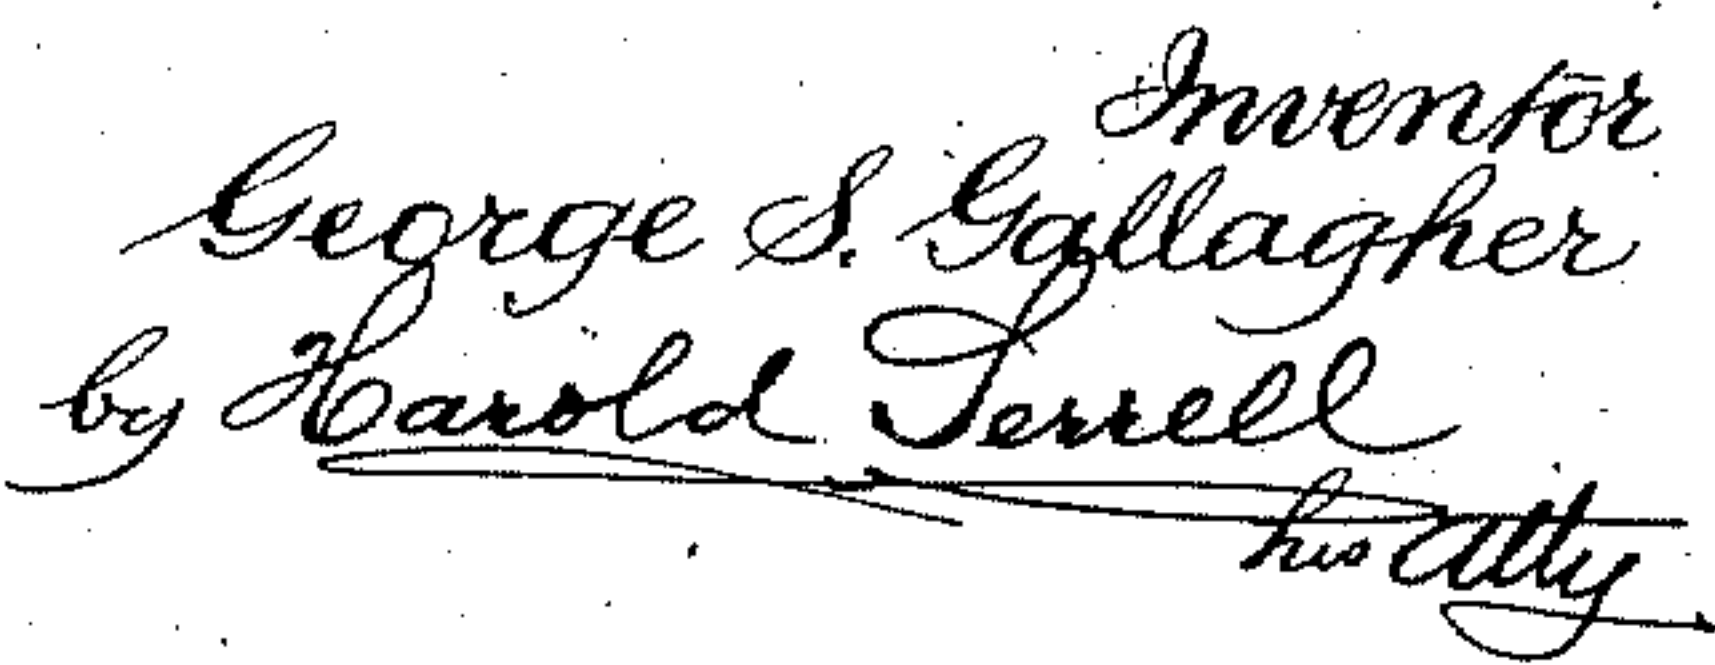 Inventor
George S. Gallagher
by Harold Terrell
his Atty